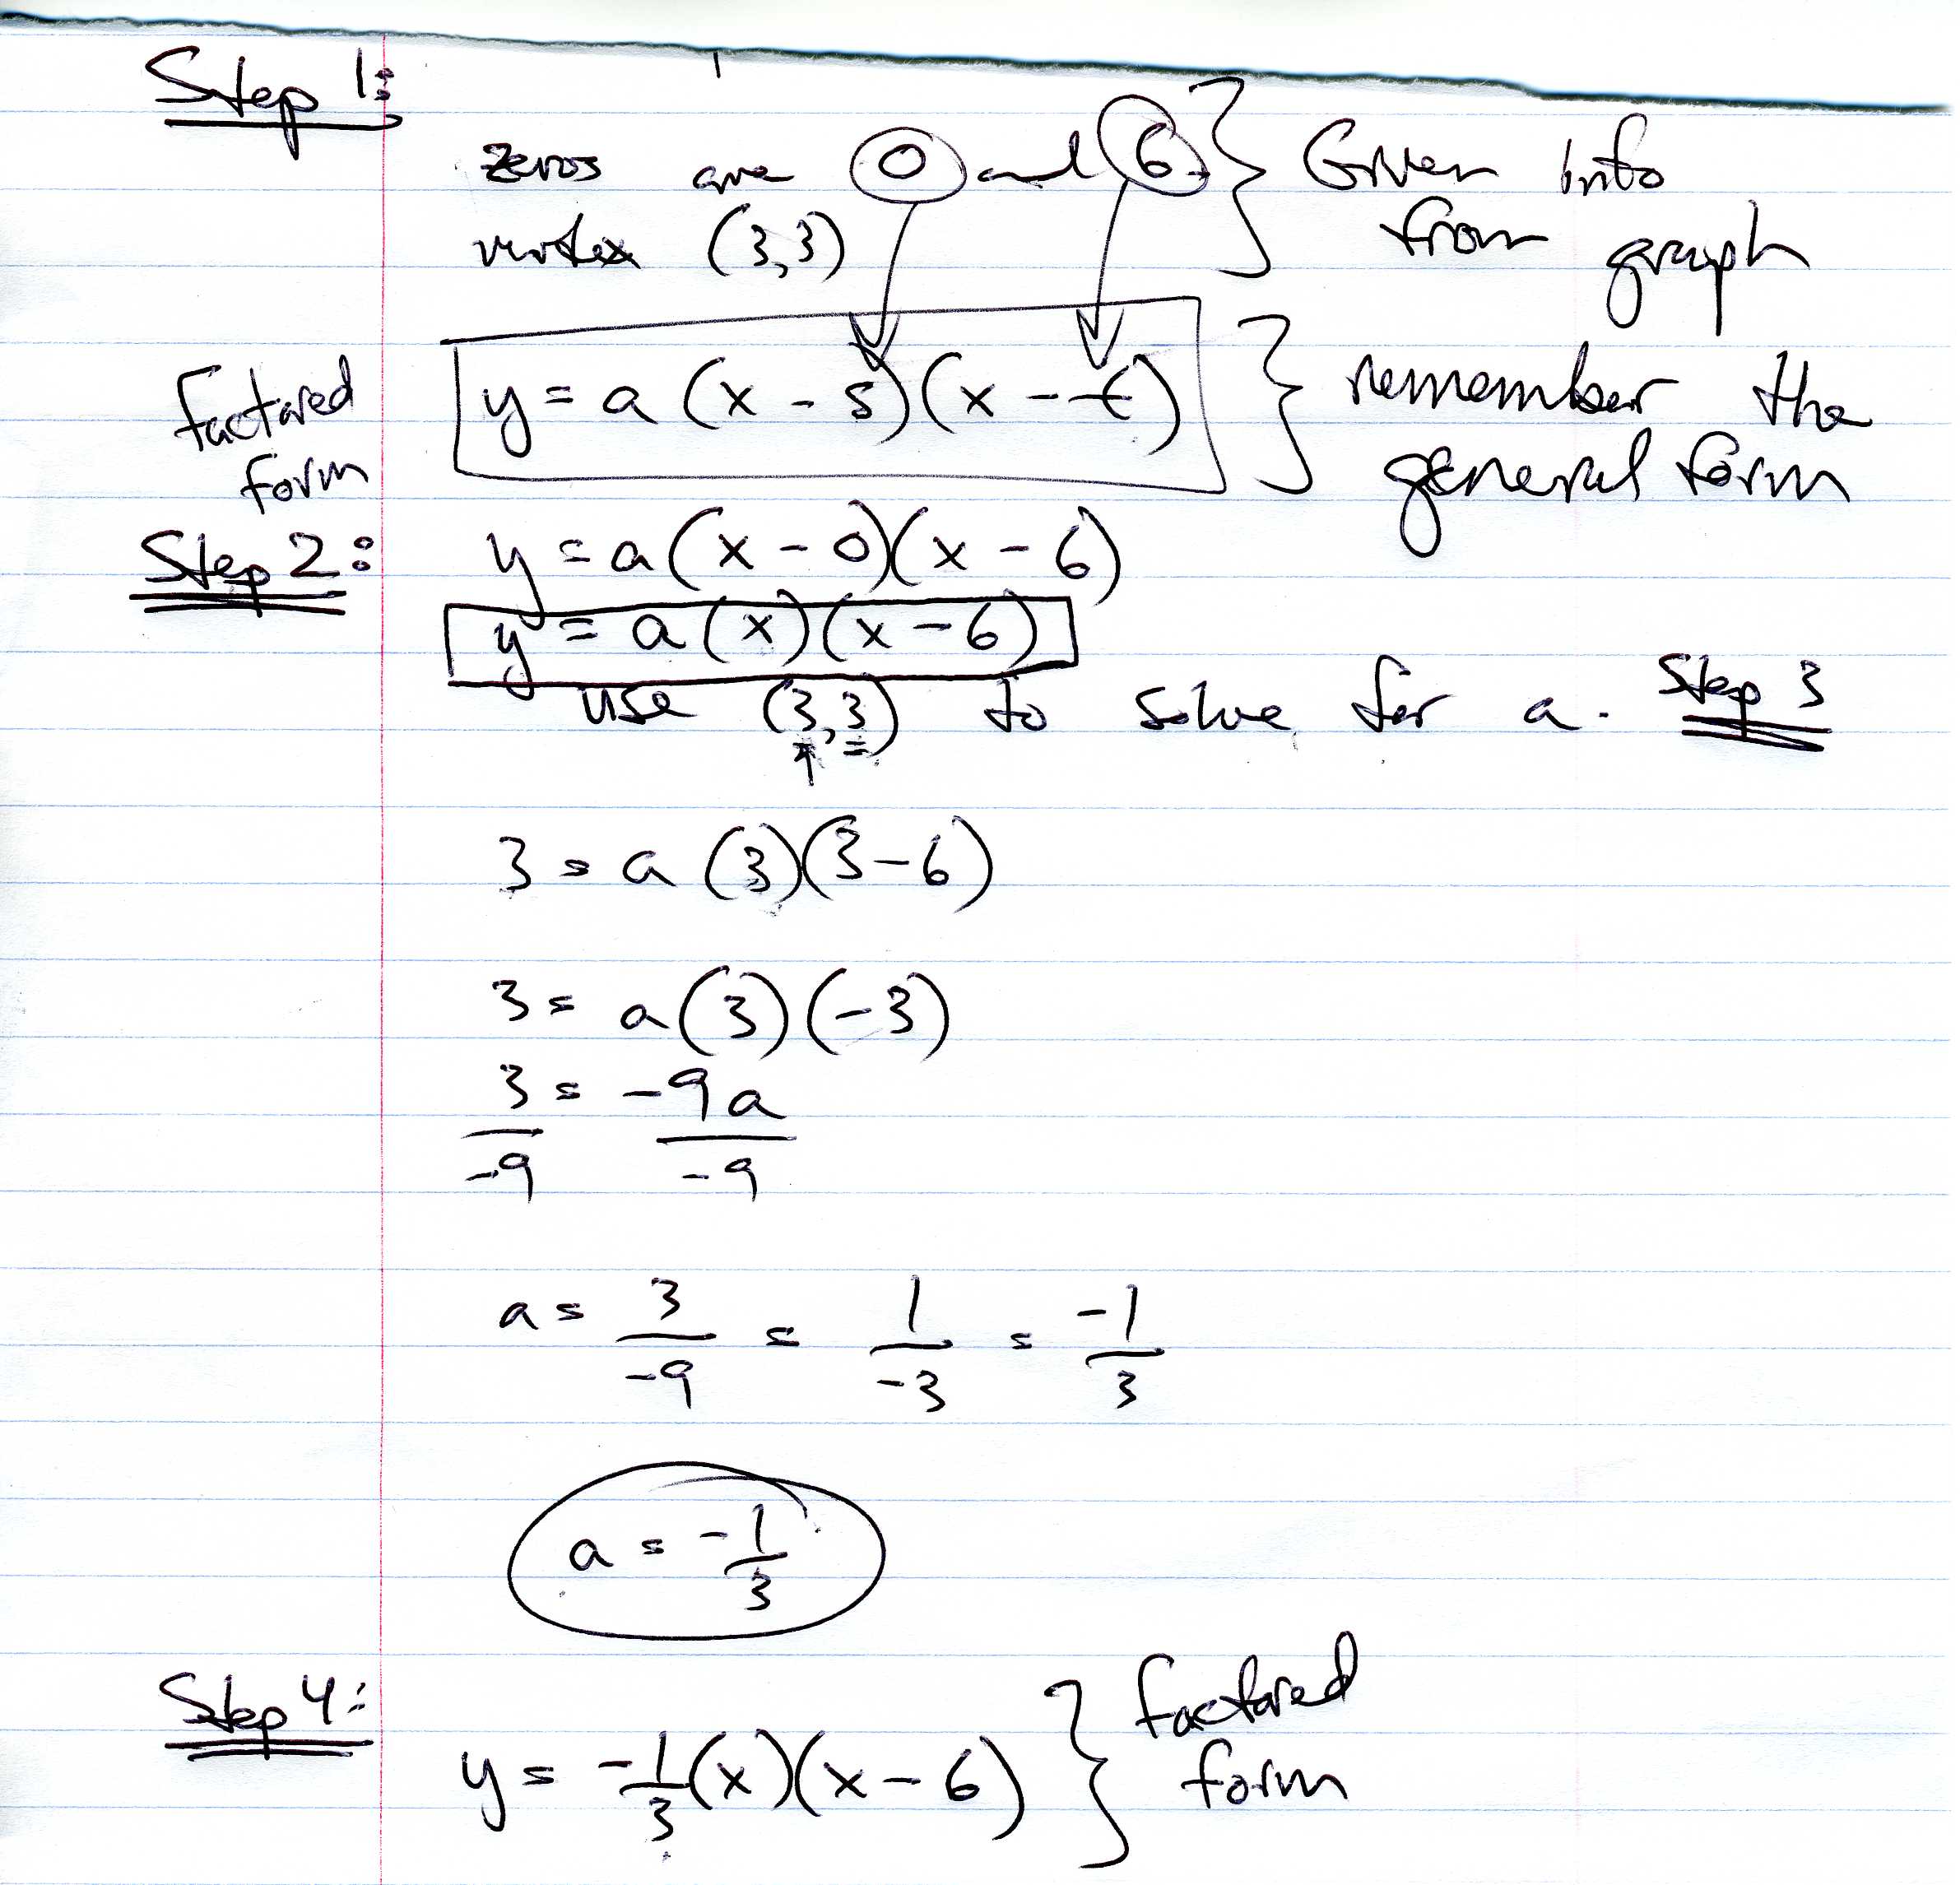 Step 1:
zeros are 0 and 6 } Given info
vertex (3,3) from graph
factored form y = a(x - s)(x - t) } remember the
general form
Step 2: y = a(x - 0)(x - 6)
y = a(x)(x - 6)
use (3,3) to solve for a. Step 3
3 = a(3)(3-6)
3 = a(3)(-3)
3 = -9a
-9 -9
a = 3/-9 = 1/-3 = -1/3
a = -1/3
Step 4:
y = -1/3(x)(x - 6) } factored
form